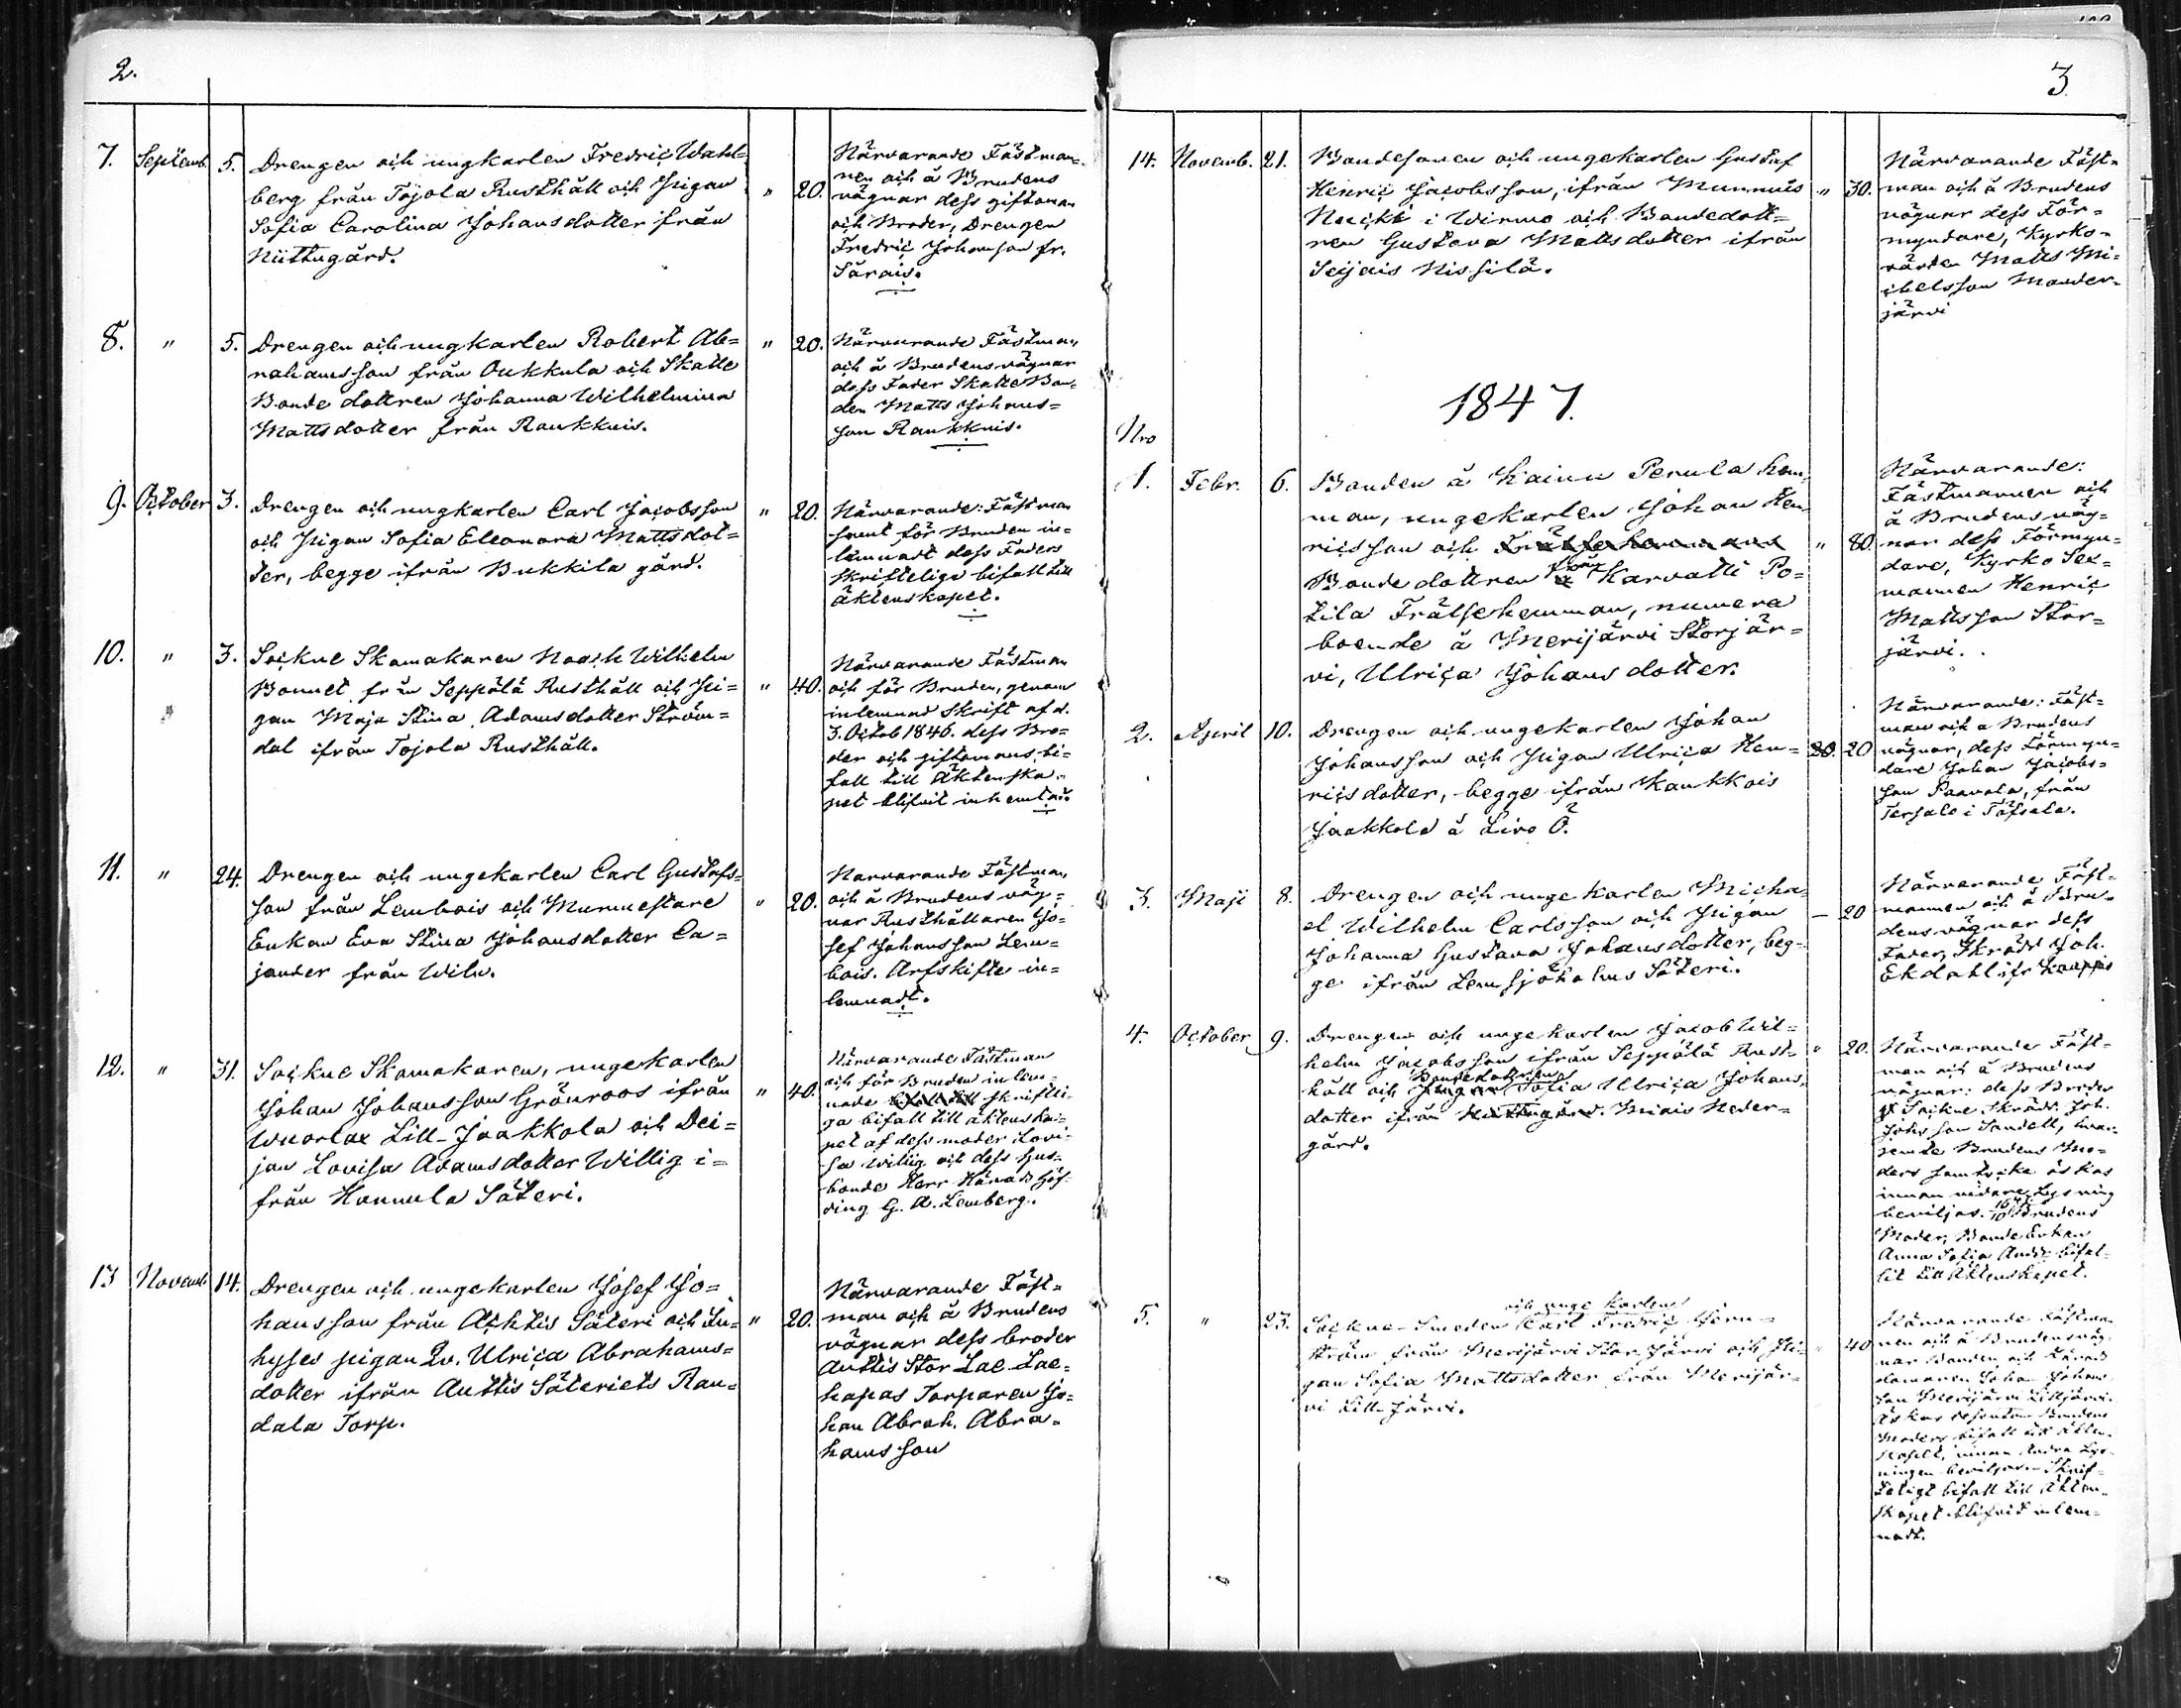 2.
7. Septemb. 5. Drengen och ungkarlen Fredric Wahl=
berg från Tojola Rusthåll och Pigan " 20.
Sofia Carolina Johansdotter från
Niittugård.
Närvarande Fästman=
nen och å Brudens
vägnar dess giftoman
och Broder, Drengen
Fredric Johansson fr.
Särais.
8. " 5. Drengen och ungkarlen Robert Ab= " 20.
rahamsson från Oukkula och Skatte
Bonde dottren Johanna Wilhelmina
Mattsdotter från Raukkuis.
Närvarande Fästman
och å Brudens vägnar
dess Fader Skatte Bon=
den Matts Johans=
son Raukkuis.
9. October 3. Drengen och ungkarlen Carl Jacobsson " 20.
och Pigan Sofia Eleonora Mattsdot=
ter, begge ifrån Bukkila gård.
Närvarande: Fästman
samt för Bruden in=
lemnadt dess Faders
skriftelige bifall till
äktenskapet.
10. " 3. Sockne Skomakaren Noach Wilhelm
Bonnet från Seppälä Rusthåll och Pi= " 40.
gan Maja Stina Adamsdotter Ström=
dal ifrån Tojola Rusthåll.
Närvarande Fästman
och för Bruden, genom
inlemnad skrift af d.
3. Octob 1846. dess Bro=
der och giftomans bi=
fall till Äktenska=
pet blifvit inhemtad.
11. " 24. Drengen och ungekarlen Carl Gustafs=
son från Lembois och Murmestare " 20.
Enkan Eva Stina Johansdotter Ca=
jander från Wilu.
Närvarande Fästman
och å Brudens väg=
nar Rusthållaren Jo=
sef Johansson Lem=
bois. Arfskifte in=
lemnadt.
12. " 31. Sockne Skomakaren, ungekarlen
Johan Johansson Grönroos ifrån " 40.
Wuorlax Lill-Jaakkola och Dei=
jan Lovisa Adamsdotter Willig i=
från Hannula Säteri.
Närvarande Fästman
och för Bruden inlem=
nade skriftli=
ga bifall till äktenska=
pet af dess moder Lovi=
sa Willig och dess Hus=
bonde Herr Härads Höf=
ding G. A. Lemberg.
13 Novemb 14. Drengen och ungekarlen Josef Jo=
hansson från Achtis Säteri och In= " 20.
hyses pigan Qv. Ulrica Abrahams=
dotter ifrån Auttis Säteriets Ran=
dala Torp.
Närvarande Fäst=
man och å Brudens
vägnar dess broder
Auttis Stor Lae Lae=
kapas Torparen Jo=
han Abrah. Abra=
hamsson
3.
14. Novemb. 21. Bondesonen och ungekarlen Gustaf
Henric Jacobsson, ifrån Munnuis " 30.
Nuicki i Wirmo och Bondedott=
ren Gustava Mattsdotter ifrån
Seijais Nissilä.
Närvarande Fäst=
man och å Brudens
vägnar dess För=
myndare, Kyrko=
värden Matts Mi=
chelsson Mander=
järvi
1847.
Nro
1. Febr. 6. Bonden å Kainu Perula hem=
man, ungekarlen Johan Hen=
ricsson och Frälsehemmans " 80.
Bonde dottren från Karvatti Po=
tila Frälsehemman, numera
boende å Merijärvi Storjär=
vi, Ulrica Johansdotter.
Närvarande:
Fästmannen och
å Brudens väg=
nar dess Förmyn=
dare, Kyrko Sex=
mannen Henric
Mattsson Stor=
järvi.
2. April 10. Drengen och ungekarlen Johan
Johansson och Pigan Ulrica Hen= 20. 20
ricsdotter, begge ifrån Kaukkois
Jaakkola å Livo Ö.
Närvarande: Fäst=
man och å Brudens
vägnar, dess Förmyn=
dare Johan Jacobs=
son Paavola, från
Tersalo i Töfsala.
3. Maji 8. Drengen och ungekarlen Micha=
el Wilhelm Carlsson och Pigan — 20
Johanna Gustava Johansdotter, beg=
ge ifrån Lemsjöholms Säteri.
Närvarande Fäst=
mannen och å Bru=
dens vägnar dess
Fader, Skrädd. Joh.
Ekdahl ifr Kauppis
4. October 9. Drengen och ungekarlen Jacob Wil=
helm Jacobsson ifrån Seppälä Rust= " 20.
håll och Pigan Bondedottren Sofia Ulrica Johans=
dotter ifrån Niittugård. Miais Neder=
gård.
Närvarande Fäst=
man och å Brudens
vägnar: dess Broder
Sockne Skrädd. Joh.
Johsson Sandell, hvar=
jemte Brudens Mo=
ders samtycke äskas
innan vidare Lysning
beviljas. Brudens
Moder, Bonde Enkan
Anna Sofia bifal=
lit till Äktenskapet.
5. " 23. Sockne-Smeden och unge karlen Carl Fredric
ström från Merijärvi Stor Järvi och Pi= " 40
gan Sofia Mattsdotter från Merijär=
vi Lill Järvi.
Närvarande Fästman=
nen och å Brudens väg=
nar Bonden och Härads
domaren Johan Johans=
son Merijärvi Lilljärvi.
Äskas dessutom Brudens
Moders bifall till Äkten=
skapet, innan andra Lys=
ningen beviljas. Skrif=
teligt bifall till Äkten=
skapet blifvit inlem=
nadt.